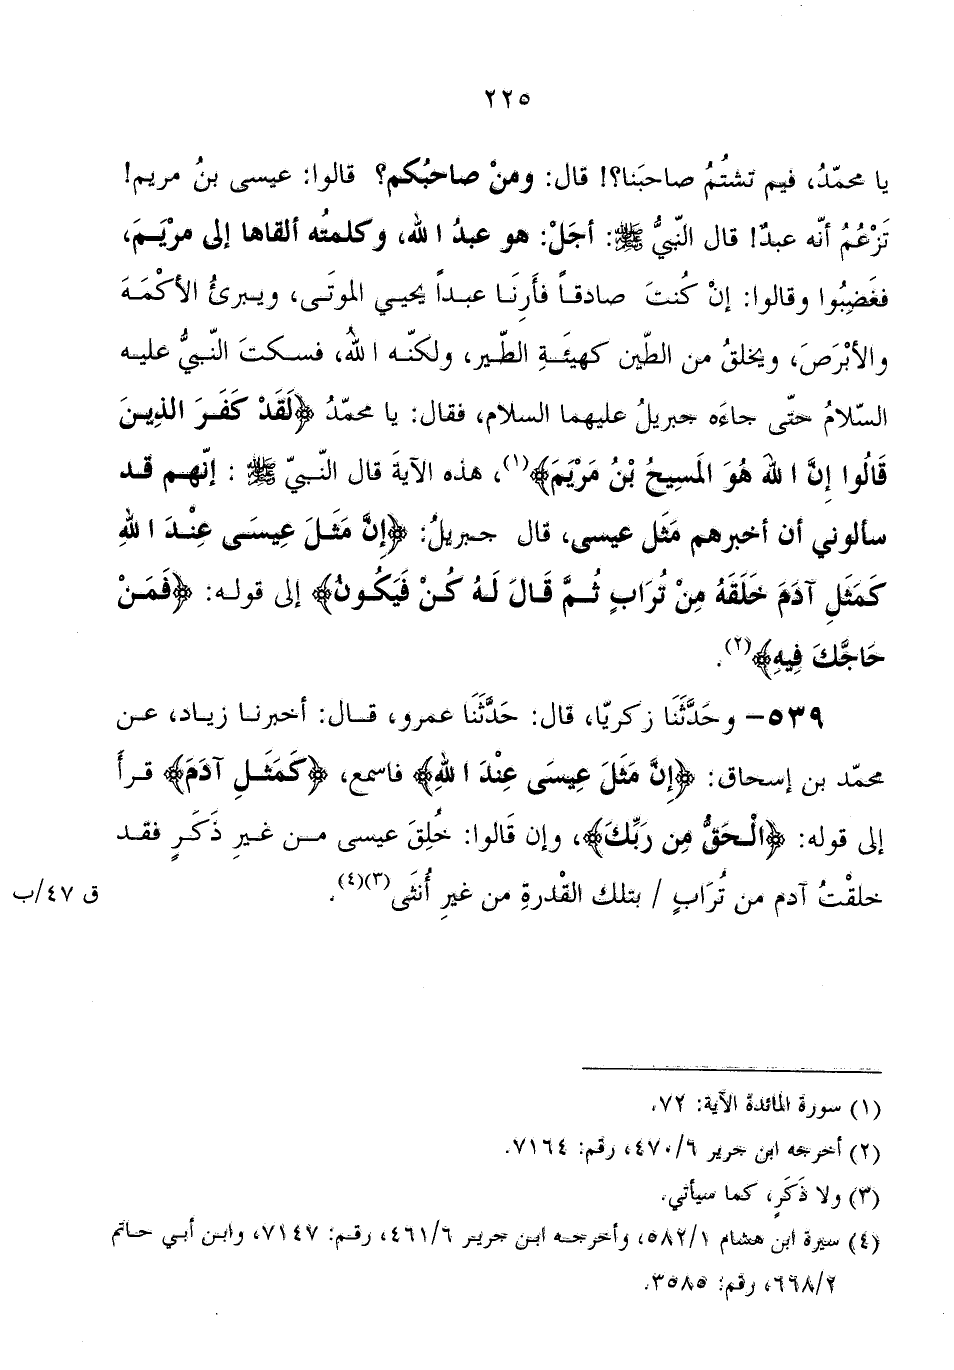 ٢٢٥
يا محمّدُ، فيم تشتُمُ صاحبَنا؟! قال: ومنْ صاحبُكم؟ قالوا: عيسى بنُ مريم!
تَزْعُمُ أنّه عبدٌ! قال النّبيُّ ﷺ: أجَلْ: هو عبدُ الله، وكلمتُه ألقاها إلى مرْيَمَ،
فغَضِبُوا وقالوا: إنْ كُنتَ صادقاً فأَرِنَا عبداً يحيي الموتَى، ويبرئُ الأكْمَهَ
والأبْرَصَ، ويخلقُ من الطّين كهيئَةِ الطّير، ولكنّه اللهُ، فسكتَ النّبيُّ عليه
السّلامُ حتّى جاءَه جبريلُ عليهما السلام، فقال: يا محمّدُ ﴿لَقَدْ كَفَرَ الذِينَ
قَالُوا إِنَّ اللهَ هُوَ المَسِيحُ بْنُ مَرْيَمَ﴾(١)، هذه الآيةَ قال النّبيّ ﷺ : إنّهم قد
سألوني أن أخبرهم مَثَل عيسى، قال جبريلُ: ﴿إِنَّ مَثَلَ عِيسَى عِنْدَ اللهِ
كَمَثَلِ آدَمَ خَلَقَهُ مِنْ تُرَابٍ ثُمَّ قَالَ لَهُ كُنْ فَيَكُونُ﴾ إلى قوله: ﴿فَمَنْ
حَاجَّكَ فِيهِ﴾(٢).
٥٣٩- وحَدَّثَنَا زكريّا، قال: حَدَّثَنَا عمرو، قال: أخبرنا زياد، عن
محمّد بن إسحاق: ﴿إِنَّ مَثَلَ عِيسَى عِنْدَ اللهِ﴾ فاسمع، ﴿كَمَثَلِ آدَمَ﴾ قرأَ
إلى قوله: ﴿الْحَقُّ مِن رَبِّكَ﴾، وإن قَالوا: خُلِقَ عيسى من غيرِ ذَكَرٍ فقد
خلقْتُ آدم من تُرَابٍ / بتلك القْدرةِ من غيرِ أُنثَى(٣)(٤).
ق ٤٧/ب
(١) سورة المائدة الآية: ٧٢.
(٢) أخرجه ابن جرير ٤٧٠/٦، رقم: ٧١٦٤.
(٣) ولا ذَكَرٍ، كما سيأتي.
(٤) سيرة ابن هشام ٥٨٢/١، وأخرجه ابن جرير ٤٦١/٦، رقم: ٧١٤٧، وابن أبي حاتم
٦٦٨/٢، رقم: ٣٥٨٥.